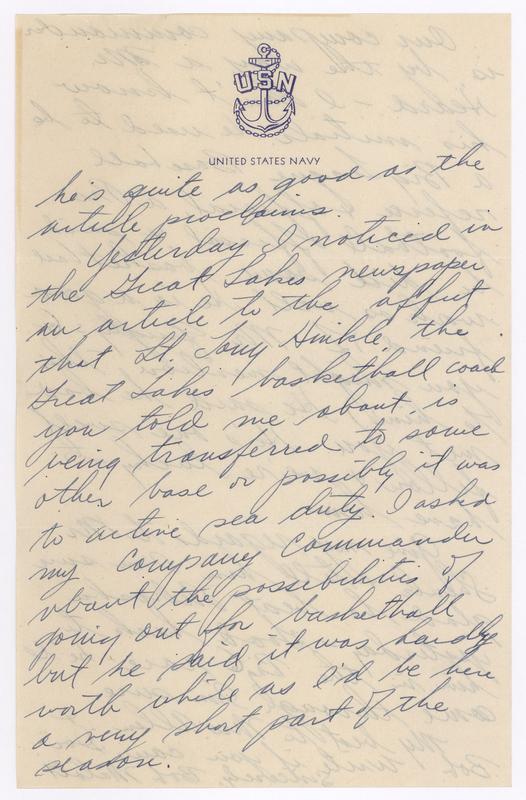 USN
UNITED STATES NAVY
he's quite as good as the
article proclaims.
Yesterday I noticed in
the Great Lakes newspaper
an article to the affect
that Lt. Tony Hinkle, the
Great Lakes' basketball coach
you told me about, is
being transferred to some
other base or possibly it was
to active sea duty. I asked
my company commander
about the possibilities of
going out for basketball
but he said it was hardly
worth while as I'd be here
a very short part of the
season.